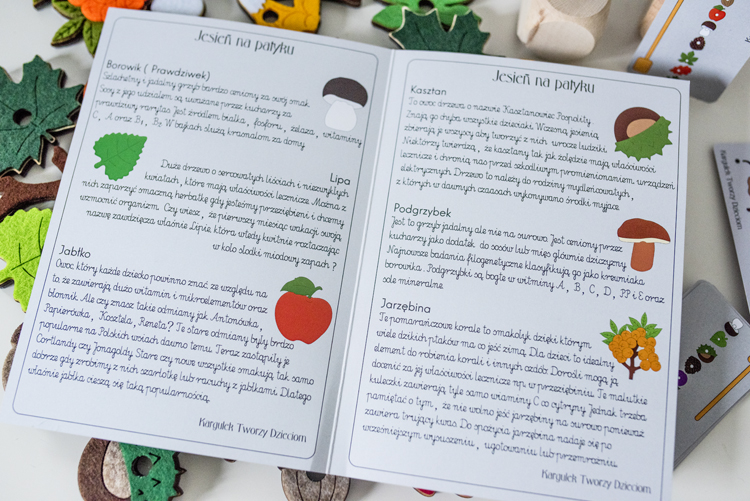 Jesień na patyku
Borowik ( Prawdziwek)
Szlachetny i jadalny grzyb bardzo ceniony za swój smak.
Sosy z jego udziałem są uważane przez kucharzy za
prawdziwy rarytas. Jest źródłem białka, fosforu, żelaza, witaminy
C, A oraz B1, B2. W bajkach służą krasnalom za domy.
Lipa
Duże drzewo o sercowatych liściach i niezwykłych
kwiatach, które mają właściwości lecznicze. Można z
nich zaparzyć smaczną herbatkę gdy jesteśmy przeziębieni i chcemy
wzmocnić organizm. Czy wiesz, że pierwszy miesiąc wakacji swoją
nazwę zawdzięcza właśnie Lipie, która wtedy kwitnie roztaczając
w koło słodki miodowy zapach ?
Jabłko
Owoc który każde dziecko powinno znać ze względu na
to, że zawierają dużo witamin i mikroelementów oraz
błonnik. Ale czy znasz takie odmiany jak Antonówka,
Papierówka, Kosztela, Reneta? Te stare odmiany były bardzo
popularne na Polskich wsiach dawno temu. Teraz zastąpiły je
Cortlandy czy Jonagoldy. Stare czy nowe wszystkie smakują tak samo
dobrze gdy zrobimy z nich szarlotkę lub racuchy z jabłkami. Dlatego
właśnie jabłka cieszą się taką popularnością.
Kargulek Tworzy Dzieciom
Jesień na patyku
Kasztan
To owoc drzewa o nazwie Kasztanowiec Pospolity.
Znają go chyba wszystkie dzieciaki. Wczesną jesienią
zbierają je wszyscy aby tworzyć z nich urocze ludziki.
Niektórzy twierdzą, że kasztany tak jak żołędzie mają właściwości
lecznicze i chronią nas przed szkodliwym promieniowaniem urządzeń
elektrycznych. Drzewo to należy do rodziny mydleńcowatych,
z których w dawnych czasach wykonywano środki myjące.
Podgrzybek
Jest to grzyb jadalny ale nie na surowo. Jest ceniony przez
kucharzy jako dodatek do sosów lub mięs głównie dziczyzny.
Najnowsze badania filogenetyczne klasyfikują go jako krewniaka
borowika. Podgrzybki są bogate w witminy A, B, C, D, PP i E oraz
sole mineralne.
Jarzębina
Te pomarańczowe korale to smakołyk dzięki którym
wiele dzikich ptaków ma co jeść zimą. Dla dzieci to idealny
element do robienia korali i innych ozdób. Dorośli mogą ją
docenić za jej właściwości lecznicze np. w przeziębieniu. Te malutkie
kuleczki zawierają tyle samo witaminy C co cytryny. Jednak trzeba
pamiętać o tym, że nie wolno jeść jarzębiny na surowo ponieważ
zawiera trujący kwas. Do spożycia jarzębina nadaje się po
wcześniejszym wysuszeniu, ugotowaniu lub przemrożeniu.
Kargulek Tworzy Dzieciom
Kargulek Tworzy Dzieciom